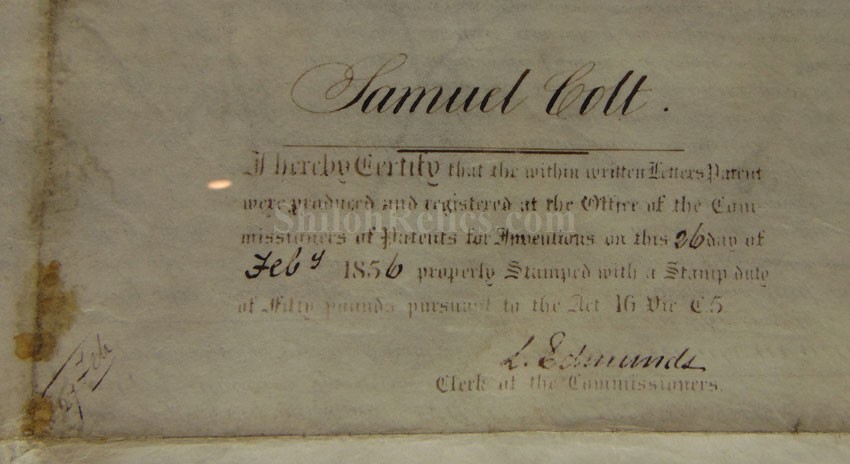 Samuel Colt.
I hereby Certify that the within written Letters Patent
were produced and registered at the Office of the Com-
ShilohRelics.com
missioners of Patents for Inventions on this 26 day of
Feby 1856 properly Stamped with a Stamp duty
of Fifty pounds pursuant to the Act 16 Vic C.5
L. Edmunds
Clerk of the Commissioners.
27 Feb